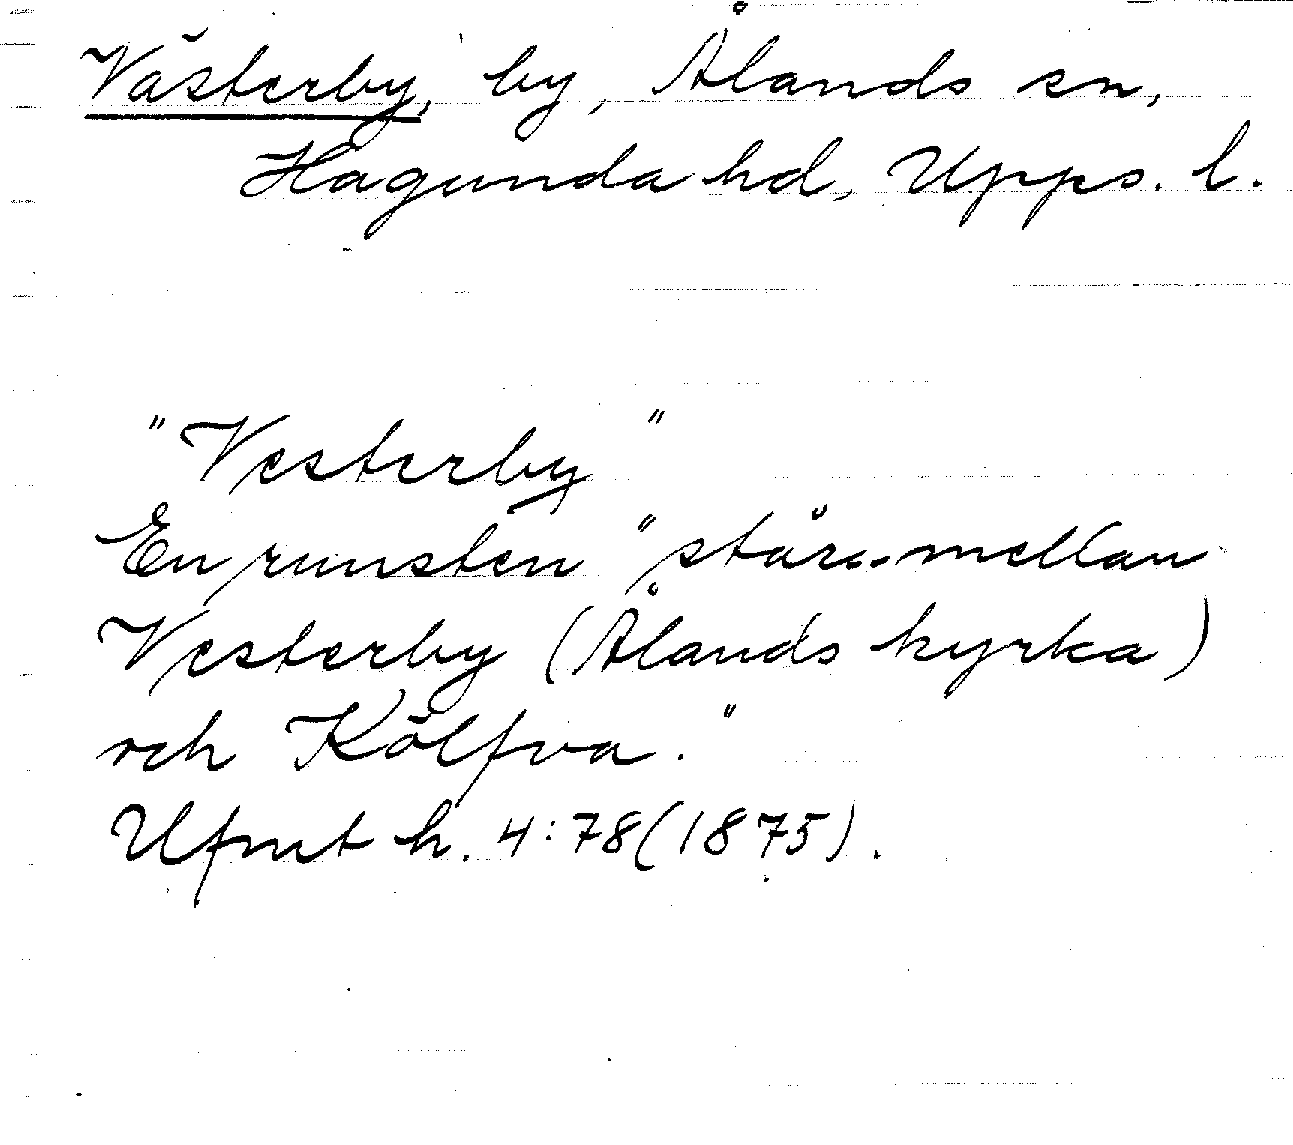 Västerby, by, Ålands sn,
Hagunda hd, Upps. l.
"Vesterby"
En runsten "står... mellan
Vesterby (Ålands kyrka)
och Kölfva."
Ufmt h. 4:78 (1875).